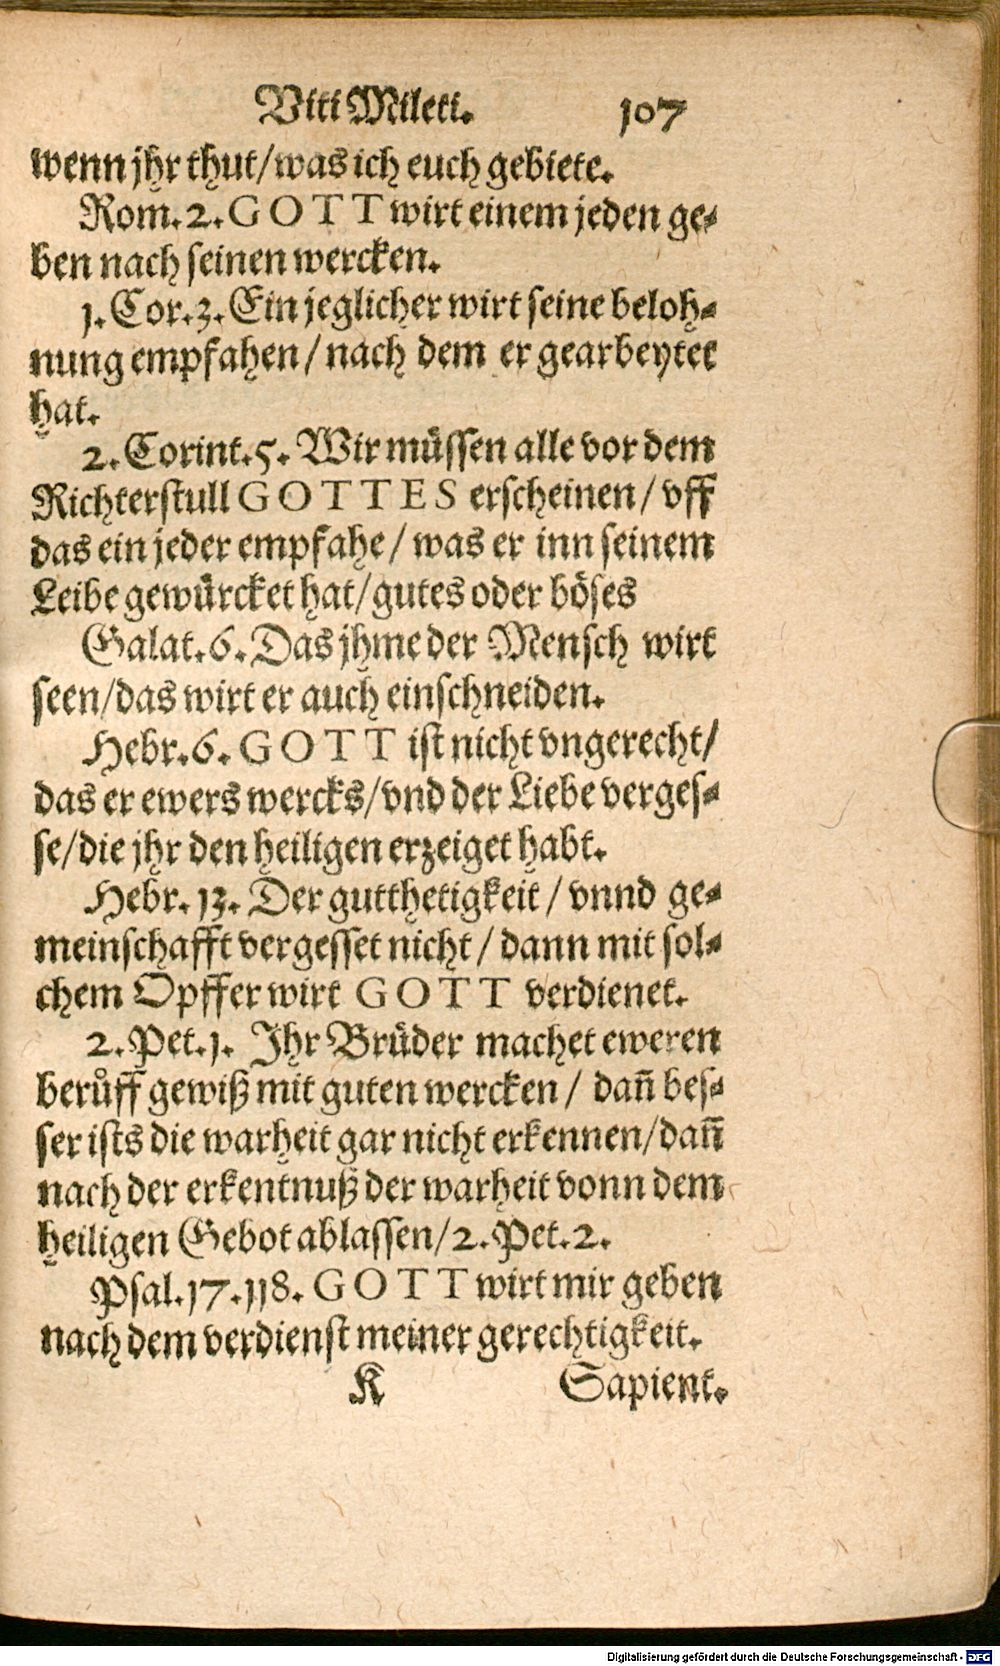 Viti Mileti. 107
wenn jhr thut/was ich euch gebiete.
Rom.2.GOTT wirt einem jeden ge-
ben nach seinen wercken.
1.Cor.3.Ein jeglicher wirt seine beloh-
nung empfahen/nach dem er gearbeytet
hat.
2.Corint.5.Wir müssen alle vor dem
Richterstull GOTTES erscheinen/vff
das ein jeder empfahe/was er inn seinem
Leibe gewürcket hat/gutes oder böses
Galat.6.Das jhme der Mensch wirt
seen/das wirt er auch einschneiden.
Hebr.6.GOTT ist nicht vngerecht/
das er ewers wercks/vnd der Liebe verges-
se/die jhr den heiligen erzeiget habt.
Hebr.13.Der gutthetigkeit/vnnd ge-
meinschafft vergesset nicht/dann mit sol-
chem Opffer wirt GOTT verdienet.
2.Pet.1. Ihr Brüder machet eweren
berůff gewiß mit guten wercken/dañ bes-
ser ists die warheit gar nicht erkennen/dañ
nach der erkentnuß der warheit vonn dem
heiligen Gebot ablassen/2.Pet.2.
Psal.17.118.GOTT wirt mir geben
nach dem verdienst meiner gerechtigkeit.
K Sapient.
Digitalisierung gefördert durch die Deutsche Forschungsgemeinschaft - DFG